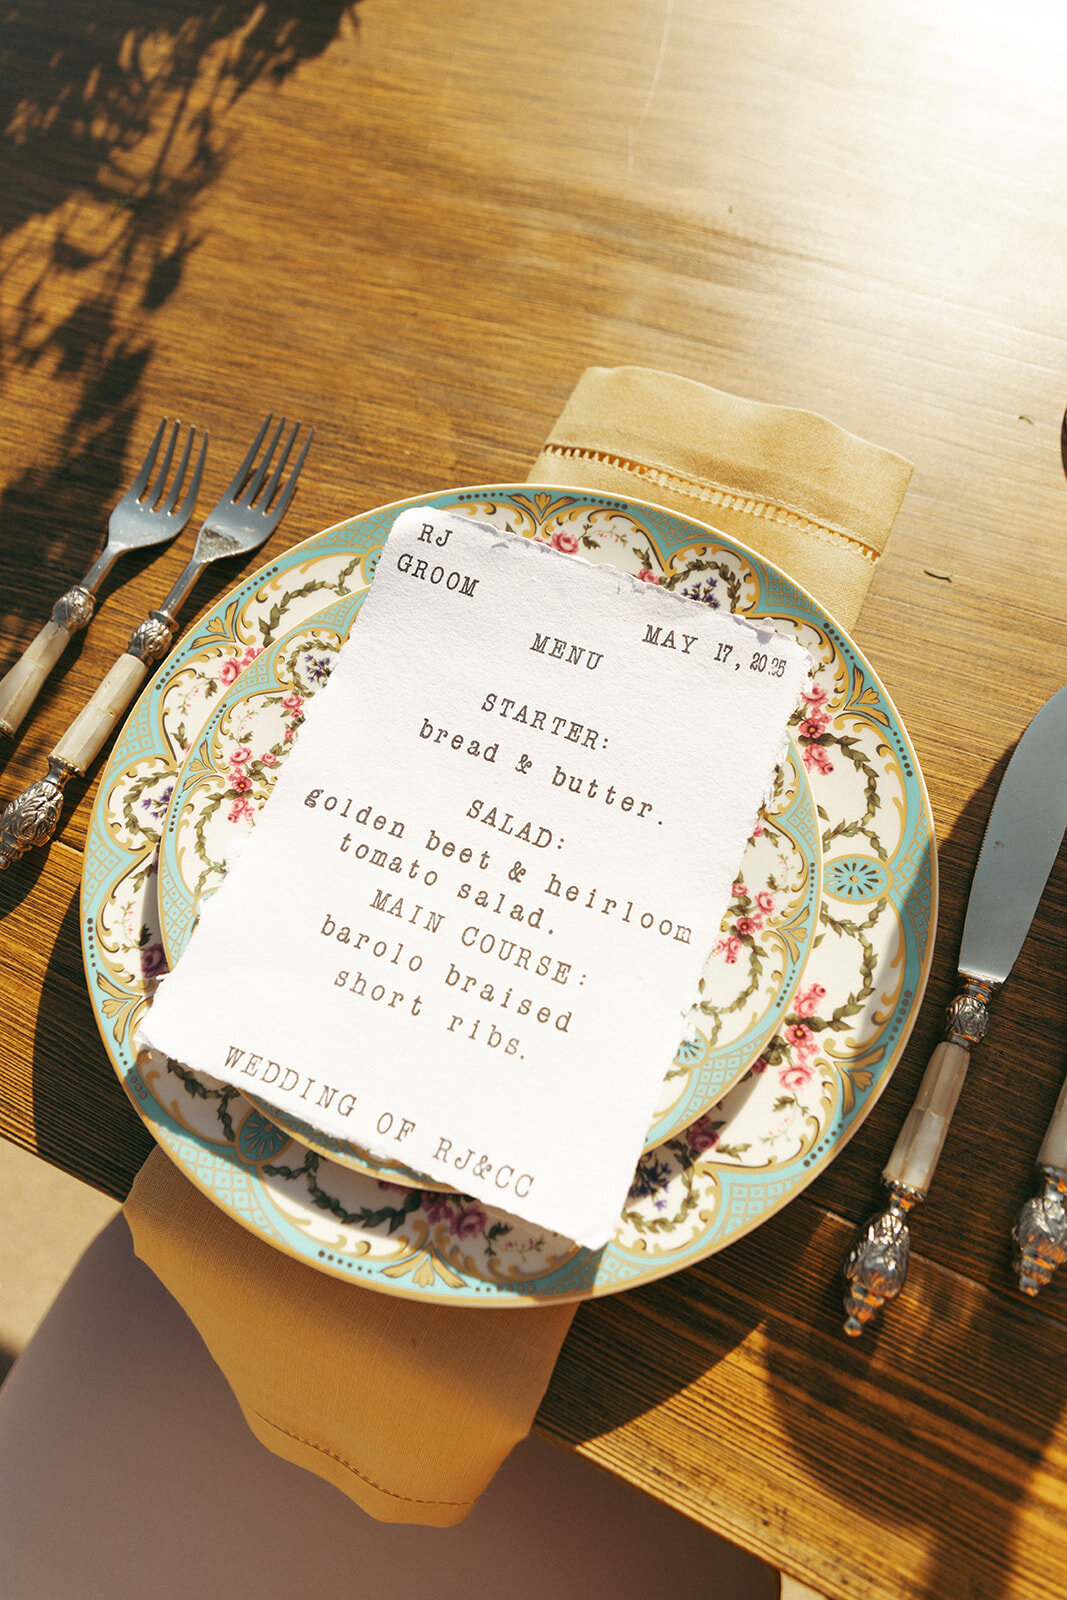 RJ
GROOM
MAY 17, 2025
MENU
STARTER:
bread & butter.
SALAD:
golden beet & heirloom
tomato salad.
MAIN COURSE:
barolo braised
short ribs.
WEDDING OF RJ&CC